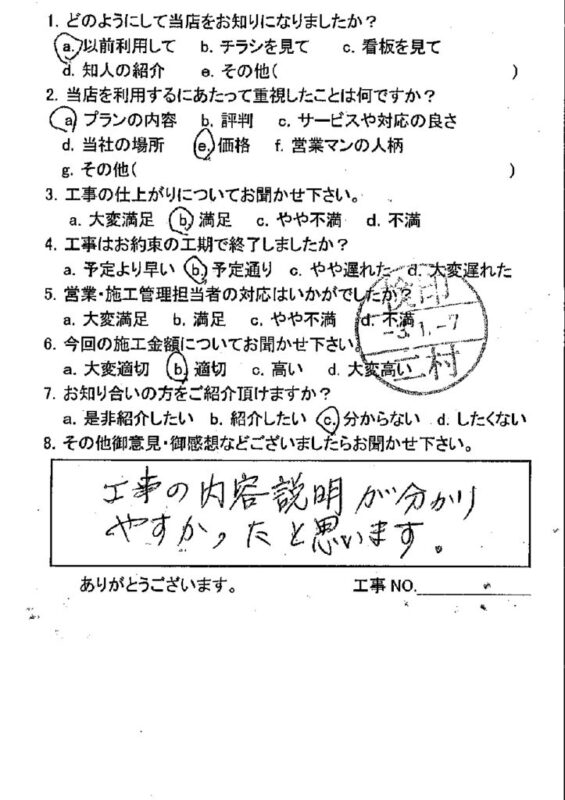 1. どのようにして当店をお知りになりましたか？
a. 以前利用して b. チラシを見て c. 看板を見て
d. 知人の紹介 e. その他( )
2. 当店を利用するにあたって重視したことは何ですか？
a プランの内容 b. 評判 c. サービスや対応の良さ
d. 当社の場所 e. 価格 f. 営業マンの人柄
g. その他( )
3. 工事の仕上がりについてお聞かせ下さい。
a. 大変満足 b. 満足 c. やや不満 d. 不満
4. 工事はお約束の工期で終了しましたか？
a. 予定より早い b. 予定通り c. やや遅れた d. 大変遅れた
5. 営業・施工管理担当者の対応はいかがでしたか？
a. 大変満足 b. 満足 c. やや不満 d. 不満
6. 今回の施工金額についてお聞かせ下さい。
a. 大変適切 b. 適切 c. 高い d. 大変高い
7. お知り合いの方をご紹介頂けますか？
a. 是非紹介したい b. 紹介したい c. 分からない d. したくない
8. その他御意見・御感想などございましたらお聞かせ下さい。
検印
-3.1.-7
二村
工事の内容説明が分かり
やすかったと思います。
ありがとうございます。 工事NO.